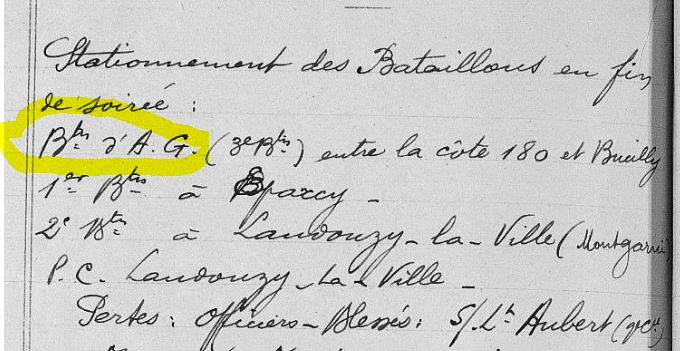 Stationnement des Bataillons en fin
de soirée :
Btns d'A.G. (3e Btns) entre la côte 180 et Bucilly
1er Btns à Eparcy -
2e Btns à Landouzy-la-Ville (Montgarni
P.C. Landouzy-la-Ville -
Pertes : Officiers - Blessés : S/Lt Aubert